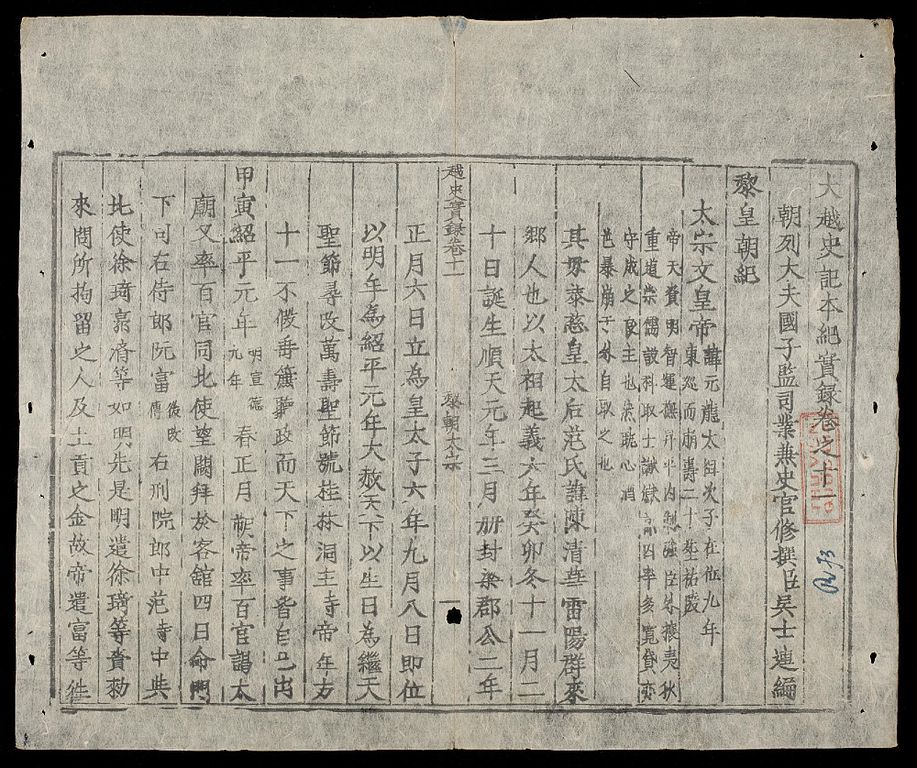 大越史記本紀實録卷之十一
朝列大夫國子監司業兼史官修撰臣吳士連編
黎皇朝紀
太宗文皇帝 諱元龍太祖次子在位九年
東巡而崩壽二十塟祐陵
帝天資明智運撫升平内制強臣外攘夷狄
重道崇儒設科取士讞獄多寬貸亦
守成之良主也然耽
色暴崩于外自取之也
其母恭慈皇太后范氏諱陳清華雷陽群來
鄉人也以太祖起義六年癸卯冬十一月二
十日誕生順天元年三月册封梁郡公二年
越史實録卷十一
黎朝太宗
一
正月六日立爲皇太子六年九月八日即位
以明年爲紹平元年大赦天下以生日爲繼天
聖節尋改萬壽聖節號桂林洞主時帝年方
十一不假垂簾聽政而天下之事皆自己出
甲寅紹平元年 明宣德
九年 春正月朔帝率百官謁太
廟又率百官同北使望闕拜於客舘四日命門
下司右侍郎阮富 後改
傳 右刑院郎中范時中
北使徐琦郭濟等如明先是明遣徐琦等賫勑
來問所拘留之人及土貢之金故帝遣富等徃